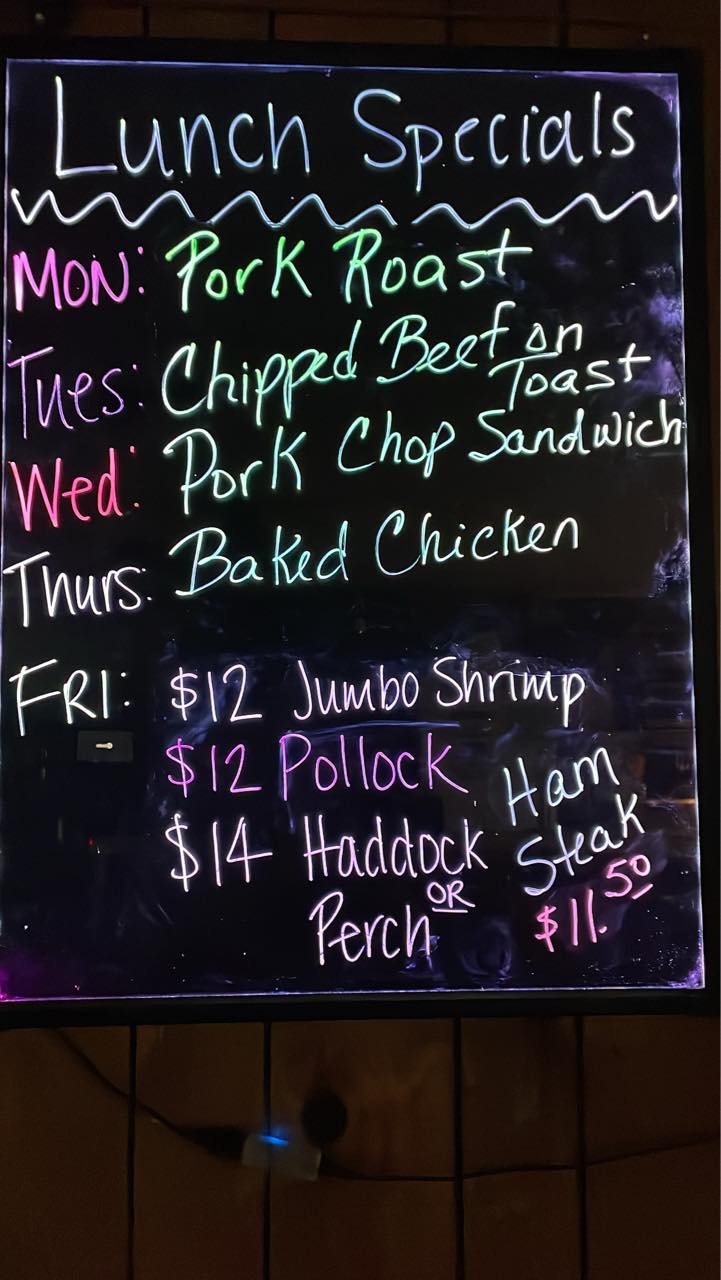 Lunch Specials
MON: Pork Roast
Tues: Chipped Beef on
Toast
Wed: Pork Chop Sandwich
Thurs: Baked Chicken
FRI: $12 Jumbo Shrimp
$12 Pollock
$14 Haddock
OR
Perch
Ham
Steak
$11.50